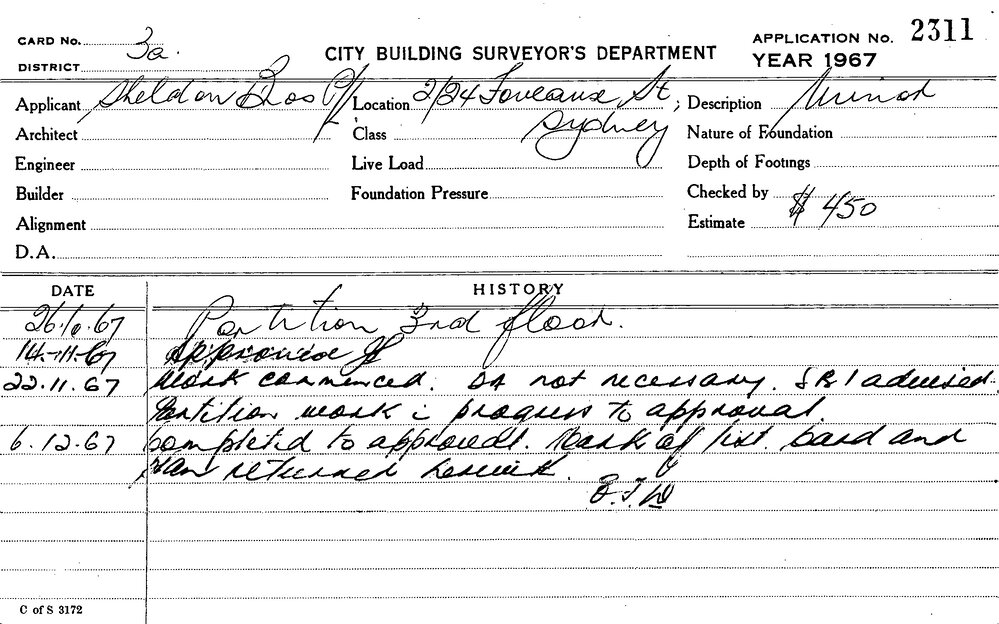 CARD No. 3a.
DISTRICT
CITY BUILDING SURVEYOR'S DEPARTMENT
APPLICATION No. 2311
YEAR 1967
Applicant Sheldon Bros P/L
Location 2/24 Foveaux St, Sydney
Description Minor
Architect
Class
Nature of Foundation
Engineer
Live Load
Depth of Footings
Builder
Foundation Pressure
Checked by
Alignment
Estimate $450
D.A.
DATE HISTORY
26.10.67 Partition 3rd floor.
14-11-67 Approved
22.11.67 Work commenced. DA not necessary. advised.
Partition work i progress to approval.
6.12.67 Completed to approval. Mark of list. Card and
Plan returned herewith.
C of S 3172